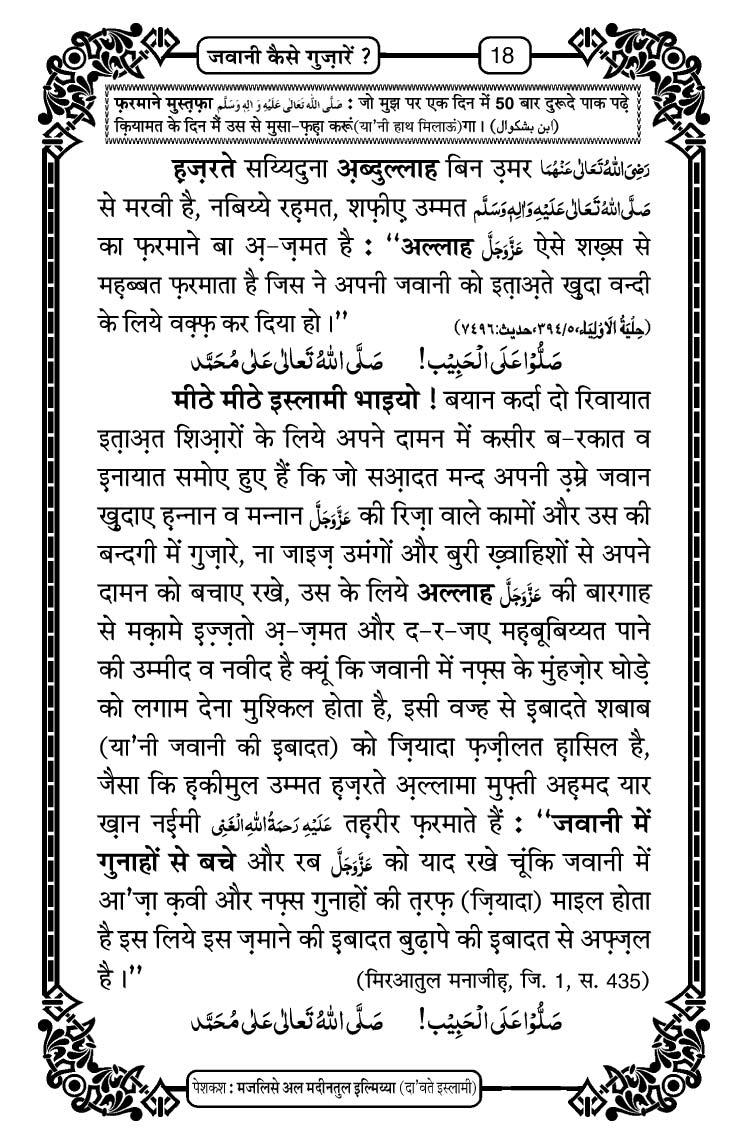 जवानी कैसे गुज़ारें ?
18
फ़रमाने मुस्तफ़ा صَلَّى اللهُ تَعَالٰى عَلَيْهِ وَاٰلِهٖ وَسَلَّم : जो मुझ पर एक दिन में 50 बार दुरूदे पाक पढ़े
क़ियामत के दिन मैं उस से मुसा-फ़ह़ा करूं(या'नी हाथ मिलाऊं)गा। (ابن بشكوال)
ह़ज़रते सय्यिदुना अ़ब्दुल्लाह बिन उ़मर رَضِىَ اللهُ تَعَالٰى عَنْهُمَا
से मरवी है, नबिय्ये रह़मत, शफ़ीए उम्मत صَلَّى اللهُ تَعَالٰى عَلَيْهِ وَاٰلِهٖ وَسَلَّم
का फ़रमाने बा अ़-ज़मत है : ‘‘अल्लाह عَزَّوَجَلَّ ऐसे शख़्स से
महब्बत फ़रमाता है जिस ने अपनी जवानी को इत़ाअ़ते ख़ुदा वन्दी
के लिये वक़्फ़ कर दिया हो।’’ (حِلْيَةُ الْاَوْلِيَاء،٣٩٤/٥،حديث:٧٤٩٦)
صَلُّوْا عَلَى الْحَبِيْب! صَلَّى اللهُ تَعَالٰى عَلٰى مُحَمَّد
मीठे मीठे इस्लामी भाइयो ! बयान कर्दा दो रिवायात
इत़ाअ़त शिआ़रों के लिये अपने दामन में कसीर ब-रकात व
इनायात समोए हुए हैं कि जो सआ़दत मन्द अपनी उ़म्रे जवान
ख़ुदाए ह़न्नान व मन्नान عَزَّوَجَلَّ की रिज़ा वाले कामों और उस की
बन्दगी में गुज़ारे, ना जाइज़ उमंगों और बुरी ख़्वाहिशों से अपने
दामन को बचाए रखे, उस के लिये अल्लाह عَزَّوَجَلَّ की बारगाह
से मक़ामे इज़्ज़तो अ़-ज़मत और द-र-जए मह़बूबिय्यत पाने
की उम्मीद व नवीद है क्यूं कि जवानी में नफ़्स के मुंहज़ोर घोड़े
को लगाम देना मुश्किल होता है, इसी वज्ह से इबादते शबाब
(या'नी जवानी की इबादत) को ज़ियादा फ़ज़ीलत ह़ासिल है,
जैसा कि ह़कीमुल उम्मत ह़ज़रते अ़ल्लामा मुफ़्ती अह़मद यार
ख़ान नई़मी عَلَيْهِ رَحمَةُ اللهِ الْغَنِى तह़रीर फ़रमाते हैं : ‘‘जवानी में
गुनाहों से बचे और रब عَزَّوَجَلَّ को याद रखे चूंकि जवानी में
आ'ज़ा क़वी और नफ़्स गुनाहों की त़रफ़ (ज़ियादा) माइल होता
है इस लिये इस ज़माने की इबादत बुढ़ापे की इबादत से अफ़्ज़ल
है।’’ (मिरआतुल मनाजीह़, जि. 1, स. 435)
صَلُّوْا عَلَى الْحَبِيْب! صَلَّى اللهُ تَعَالٰى عَلٰى مُحَمَّد
पेशकश : मजलिसे अल मदीनतुल इल्मिय्या (दा'वते इस्लामी)